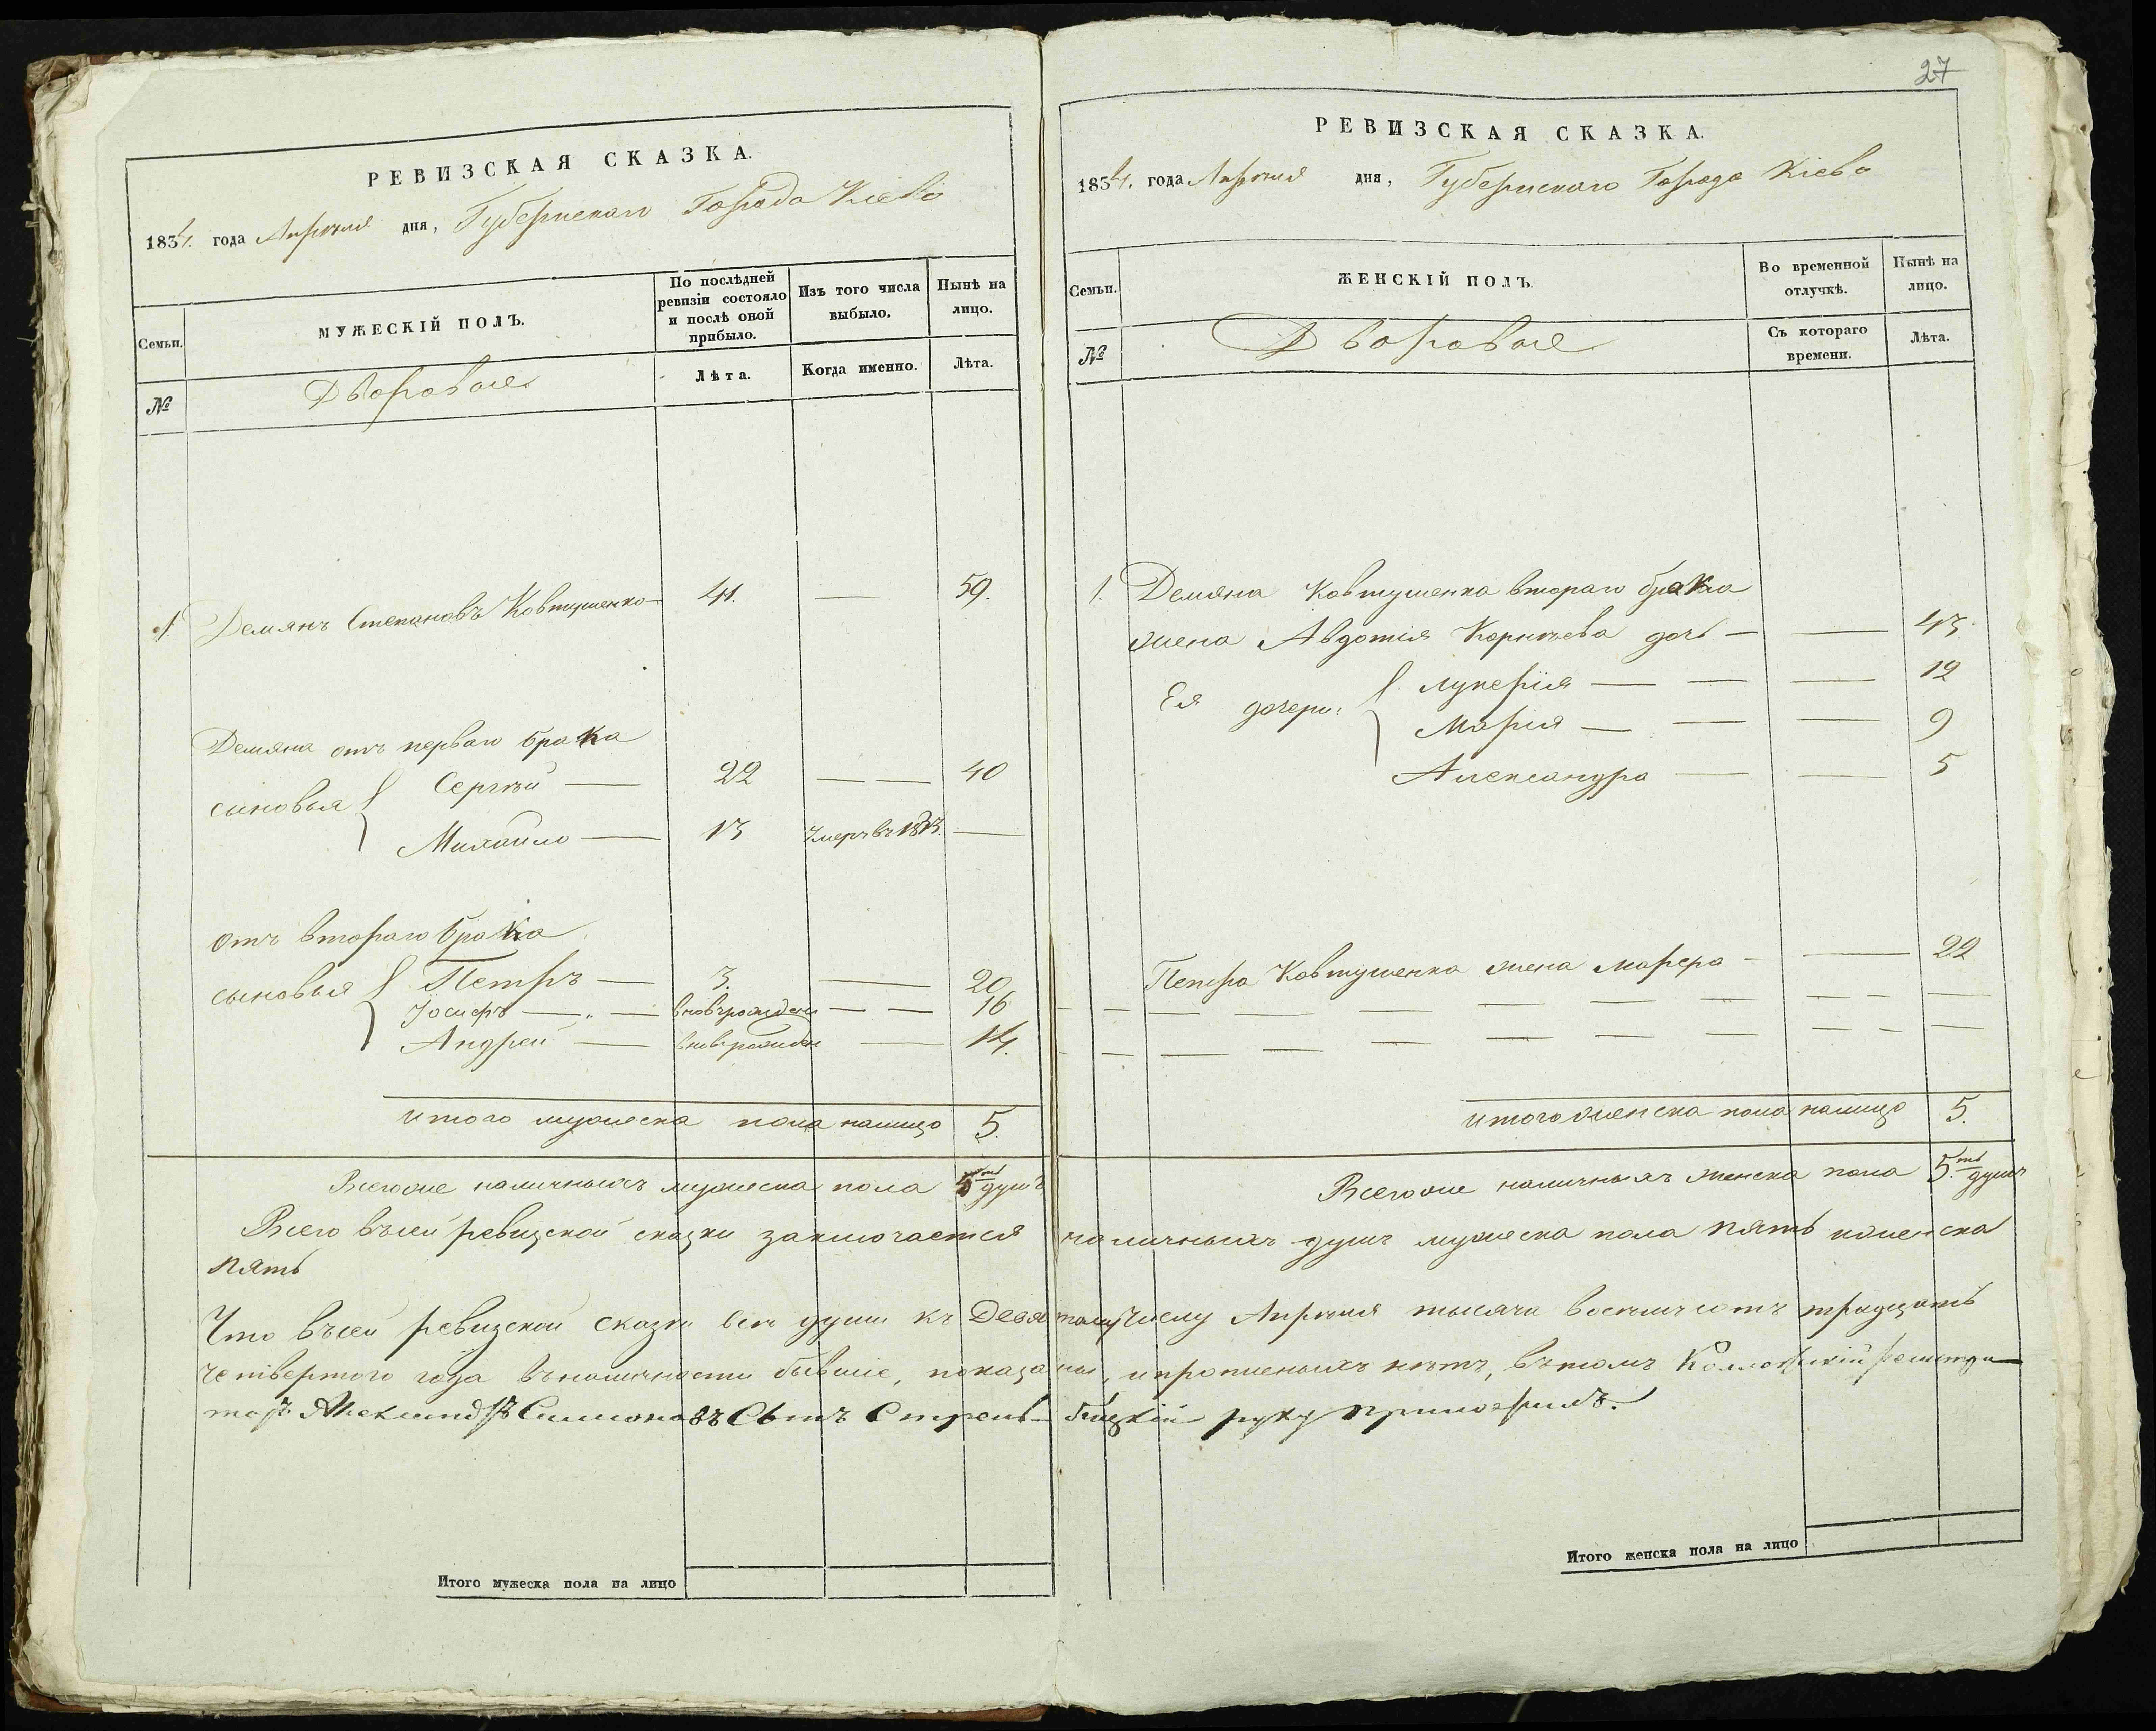 РЕВИЗСКАЯ СКАЗКА.
1834. года Апрѣля дня, Губернскаго Города Кіева
Семьи.
МУЖЕСКІЙ ПОЛЪ.
По послѣдней ревизіи состояло и послѣ оной прибыло.
Изъ того числа выбыло.
Нынѣ на лицо.
№
Дворовые
Лѣта.
Когда именно.
Лѣта.
1. Демянъ Степановъ Ковтушенко — 41. — 59.
Демяна отъ перваго брака
сыновья { Сергѣй — 22 — — 40
Михайло — 13 умеръ въ 1813. —
отъ втораго брака
сыновья { Петръ — 3. — 20
Іосифъ — „ — вновьрожденъ — — 16
Андрей — вновьрожденъ — 14.
итого мужеска пола налицо 5.
Всегоже наличныхъ мужеска пола 5ть душъ
27
РЕВИЗСКАЯ СКАЗКА.
1834. года Апрѣля дня, Губернскаго Города Кіева
Семьи.
ЖЕНСКІЙ ПОЛЪ.
Во временной отлучкѣ.
Нынѣ на лицо.
№
Дворовые
Съ котораго времени.
Лѣта.
1. Демяна Ковтушенка втораго брака
жена Авдотія Корнѣева дочь — — 43
Ея дочери: { Лукерія — — — 12
Марія — — — 9
Александра — — 5
Петра Ковтушенка жена Марфа — — 22
итого женска пола налицо 5.
Всегоже наличныхъ женска пола 5.ть душъ
Всего въсей ревизской сказки заключается наличныхъ душъ мужеска пола пять иженска
пять
Что въсей ревизской сказки всѣ души къ Девятому числу Апрѣля тысяча восемьсотъ тридцать
четвертого года въналичности бывшіе, показаны, ипрописныхъ нѣтъ, вътомъ Коллежскій регистра
торъ Александръ Симоновъ Сынъ Стрельбицкій руку приложилъ.
Итого мужеска пола на лицо
Итого женска пола на лицо